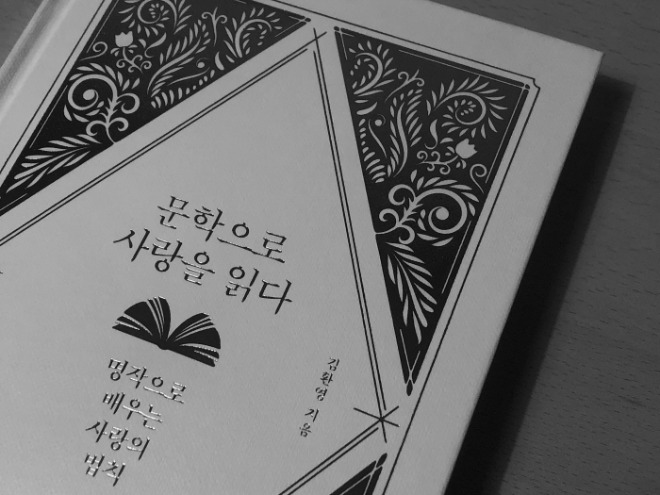 문학으로
사랑을 읽다
명작으로
배우는
사랑의
법칙
김환영 지음